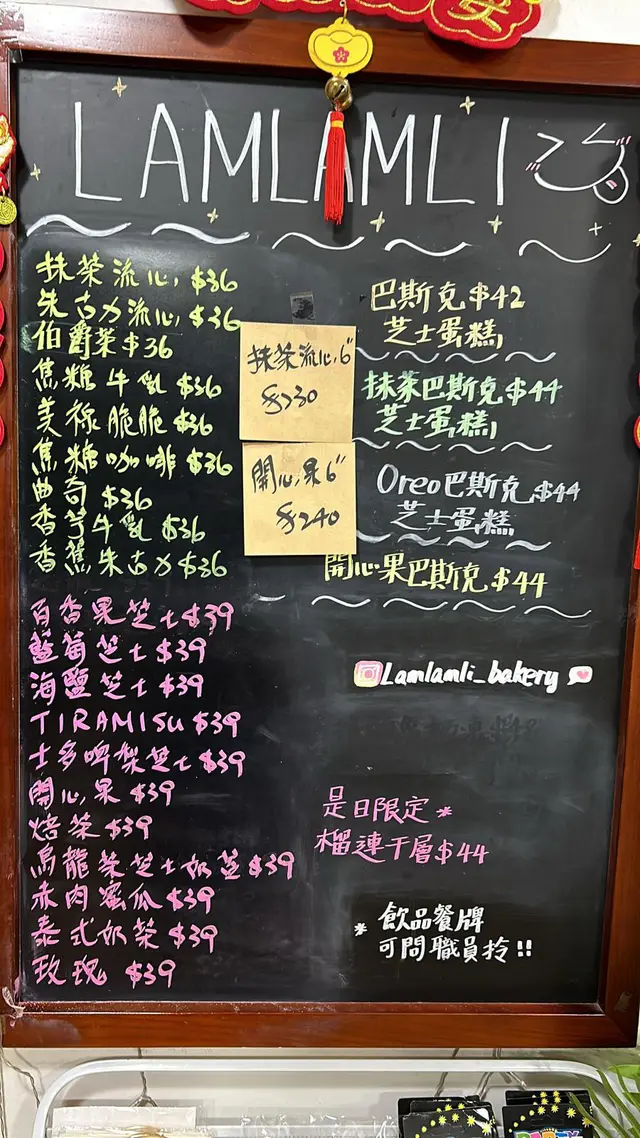 LAMLAMLI
抹茶流心 $36
朱古力流心 $36
伯爵茶 $36
焦糖牛乳 $36
美祿脆脆 $36
焦糖咖啡 $36
曲奇 $36
香芋牛乳 $36
香蕉朱古力 $36
百香果芝士 $39
藍莓芝士 $39
海鹽芝士 $39
TIRAMISU $39
士多啤梨芝士 $39
開心果 $39
焙茶 $39
烏龍茶芝士奶蓋 $39
赤肉蜜瓜 $39
泰式奶茶 $39
玫瑰 $39
抹茶流心 6"
$230
開心果 6"
$240
巴斯克 $42
芝士蛋糕
抹茶巴斯克 $44
芝士蛋糕
Oreo巴斯克 $44
芝士蛋糕
開心果巴斯克 $44
Lamlamli_bakery
是日限定*
榴連千層 $44
* 飲品餐牌
可問職員拎!!